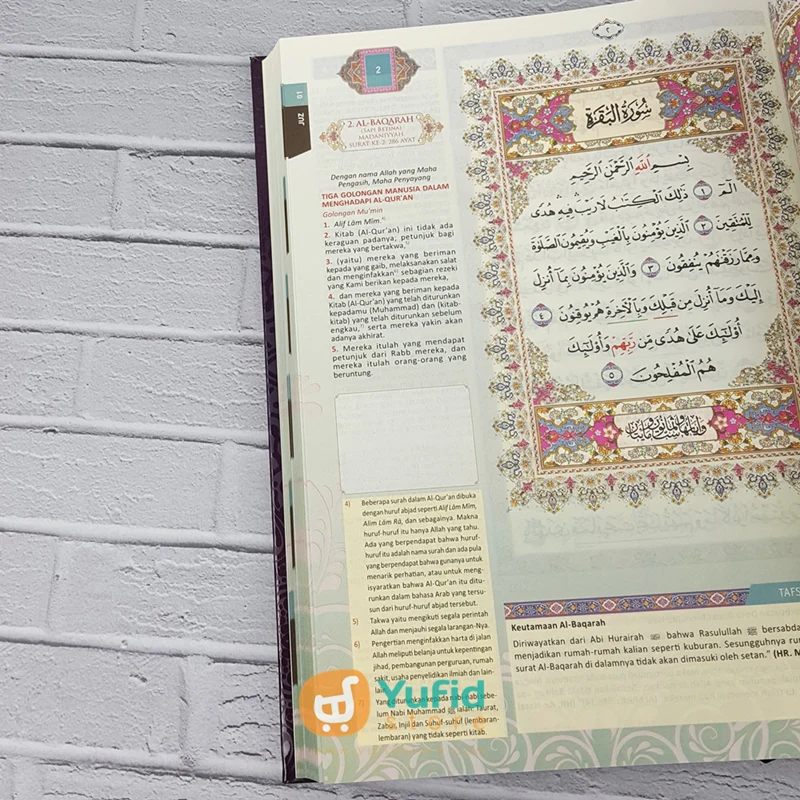 JUZ 01
2
2. AL-BAQARAH
(SAPI BETINA)
MADANIYYAH
SURAT KE-2: 286 AYAT
Dengan nama Allah yang Maha
Pengasih, Maha Penyayang
TIGA GOLONGAN MANUSIA DALAM
MENGHADAPI AL-QUR'AN
Golongan Mu'min
1. Alif Lām Mīm.⁴⁾
2. Kitab (Al-Qur'an) ini tidak ada
keraguan padanya; petunjuk bagi
mereka yang bertakwa,⁵⁾
3. (yaitu) mereka yang beriman
kepada yang gaib, melaksanakan salat
dan menginfakkan⁶⁾ sebagian rezeki
yang Kami berikan kepada mereka,
4. dan mereka yang beriman kepada
Kitab (Al-Qur'an) yang telah diturunkan
kepadamu (Muhammad) dan (kitab-
kitab) yang telah diturunkan sebelum
engkau,⁷⁾ serta mereka yakin akan
adanya akhirat.
5. Mereka itulah yang mendapat
petunjuk dari Rabb mereka, dan
mereka itulah orang-orang yang
beruntung.
4) Beberapa surah dalam Al-Qur'an dibuka
dengan huruf abjad seperti Alif Lām Mīm,
Alim Lām Rā, dan sebagainya. Makna
huruf-huruf itu hanya Allah yang tahu.
Ada yang berpendapat bahwa huruf-
huruf itu adalah nama surah dan ada pula
yang berpendapat bahwa gunanya untuk
menarik perhatian, atau untuk meng-
isyaratkan bahwa Al-Qur'an itu ditu-
runkan dalam bahasa Arab yang tersu-
sun dari huruf-huruf abjad tersebut.
5) Takwa yaitu mengikuti segala perintah
Allah dan menjauhi segala larangan-Nya.
6) Pengertian menginfakkan harta di jalan
Allah meliputi belanja untuk kepentingan
jihad, pembangunan perguruan, rumah
sakit, usaha penyelidikan ilmiah dan lain-
lain
Yang diturunkan kepada nabi-nabi sebe-
lum Nabi Muhammad ﷺ ialah: Taurat,
Zabur, Injil dan Suhuf-suhuf (lembaran-
lembaran) yang tidak seperti kitab.
٢
سُورَةُ الْبَقَرَةِ
بِسْمِ اللَّهِ الرَّحْمَٰنِ الرَّحِيمِ
الٓمٓ ١ ذَٰلِكَ الْكِتَٰبُ لَا رَيْبَ ۛ فِيهِ ۛ هُدًى
لِّلْمُتَّقِينَ ٢ الَّذِينَ يُؤْمِنُونَ بِالْغَيْبِ وَيُقِيمُونَ الصَّلَوٰةَ
وَمِمَّا رَزَقْنَٰهُمْ يُنفِقُونَ ٣ وَالَّذِينَ يُؤْمِنُونَ بِمَآ أُنزِلَ
إِلَيْكَ وَمَآ أُنزِلَ مِن قَبْلِكَ وَبِالْءَاخِرَةِ هُمْ يُوقِنُونَ ٤
أُو۟لَٰٓئِكَ عَلَىٰ هُدًى مِّن رَّبِّهِمْ وَأُو۟لَٰٓئِكَ
هُمُ الْمُفْلِحُونَ ٥
TAFS
Keutamaan Al-Baqarah
Diriwayatkan dari Abi Hurairah ﷺ bahwa Rasulullah ﷺ bersabda
menjadikan rumah-rumah kalian seperti kuburan. Sesungguhnya
surat Al-Baqarah di dalamnya tidak akan dimasuki oleh setan." (HR. M
Yufid
store